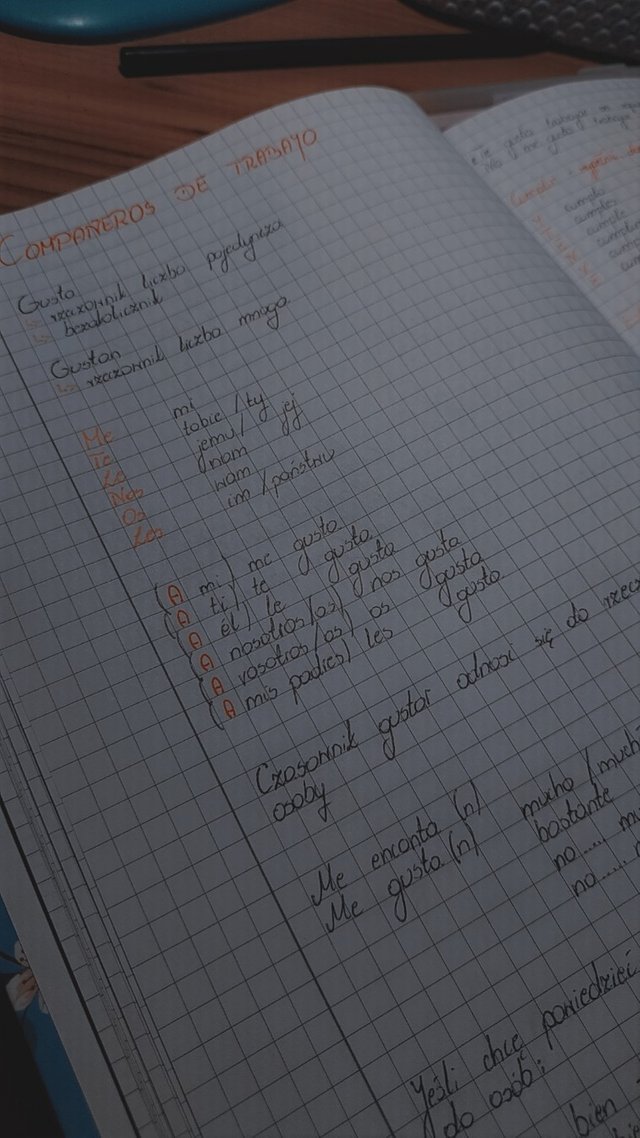 COMPAÑEROS DE TRABAJO
Gusta
↳ rzeczownik liczba pojedyncza
↳ bezokolicznik
Gustan
↳ rzeczownik liczba mnoga
Me mi
Te tobie / ty
Le jemu / jej
Nos nam
Os wam
Les im / państwu
(A mi) me gusta
(A ti) te gusta
(A él) le gusta
(A nosotros/as) nos gusta
(A vosotros/as) os gusta
(A mis padres) les gusta
Czasownik gustar odnosi się do
osoby
Me encanta (n)
Me gusta (n) mucho /
bastante
no.....
no.....
Jeśli chcę powiedzieć
do osób:
bien
gusta trabajar
me gusta trabajar
Cumplir
cumplo
cumples
cumple